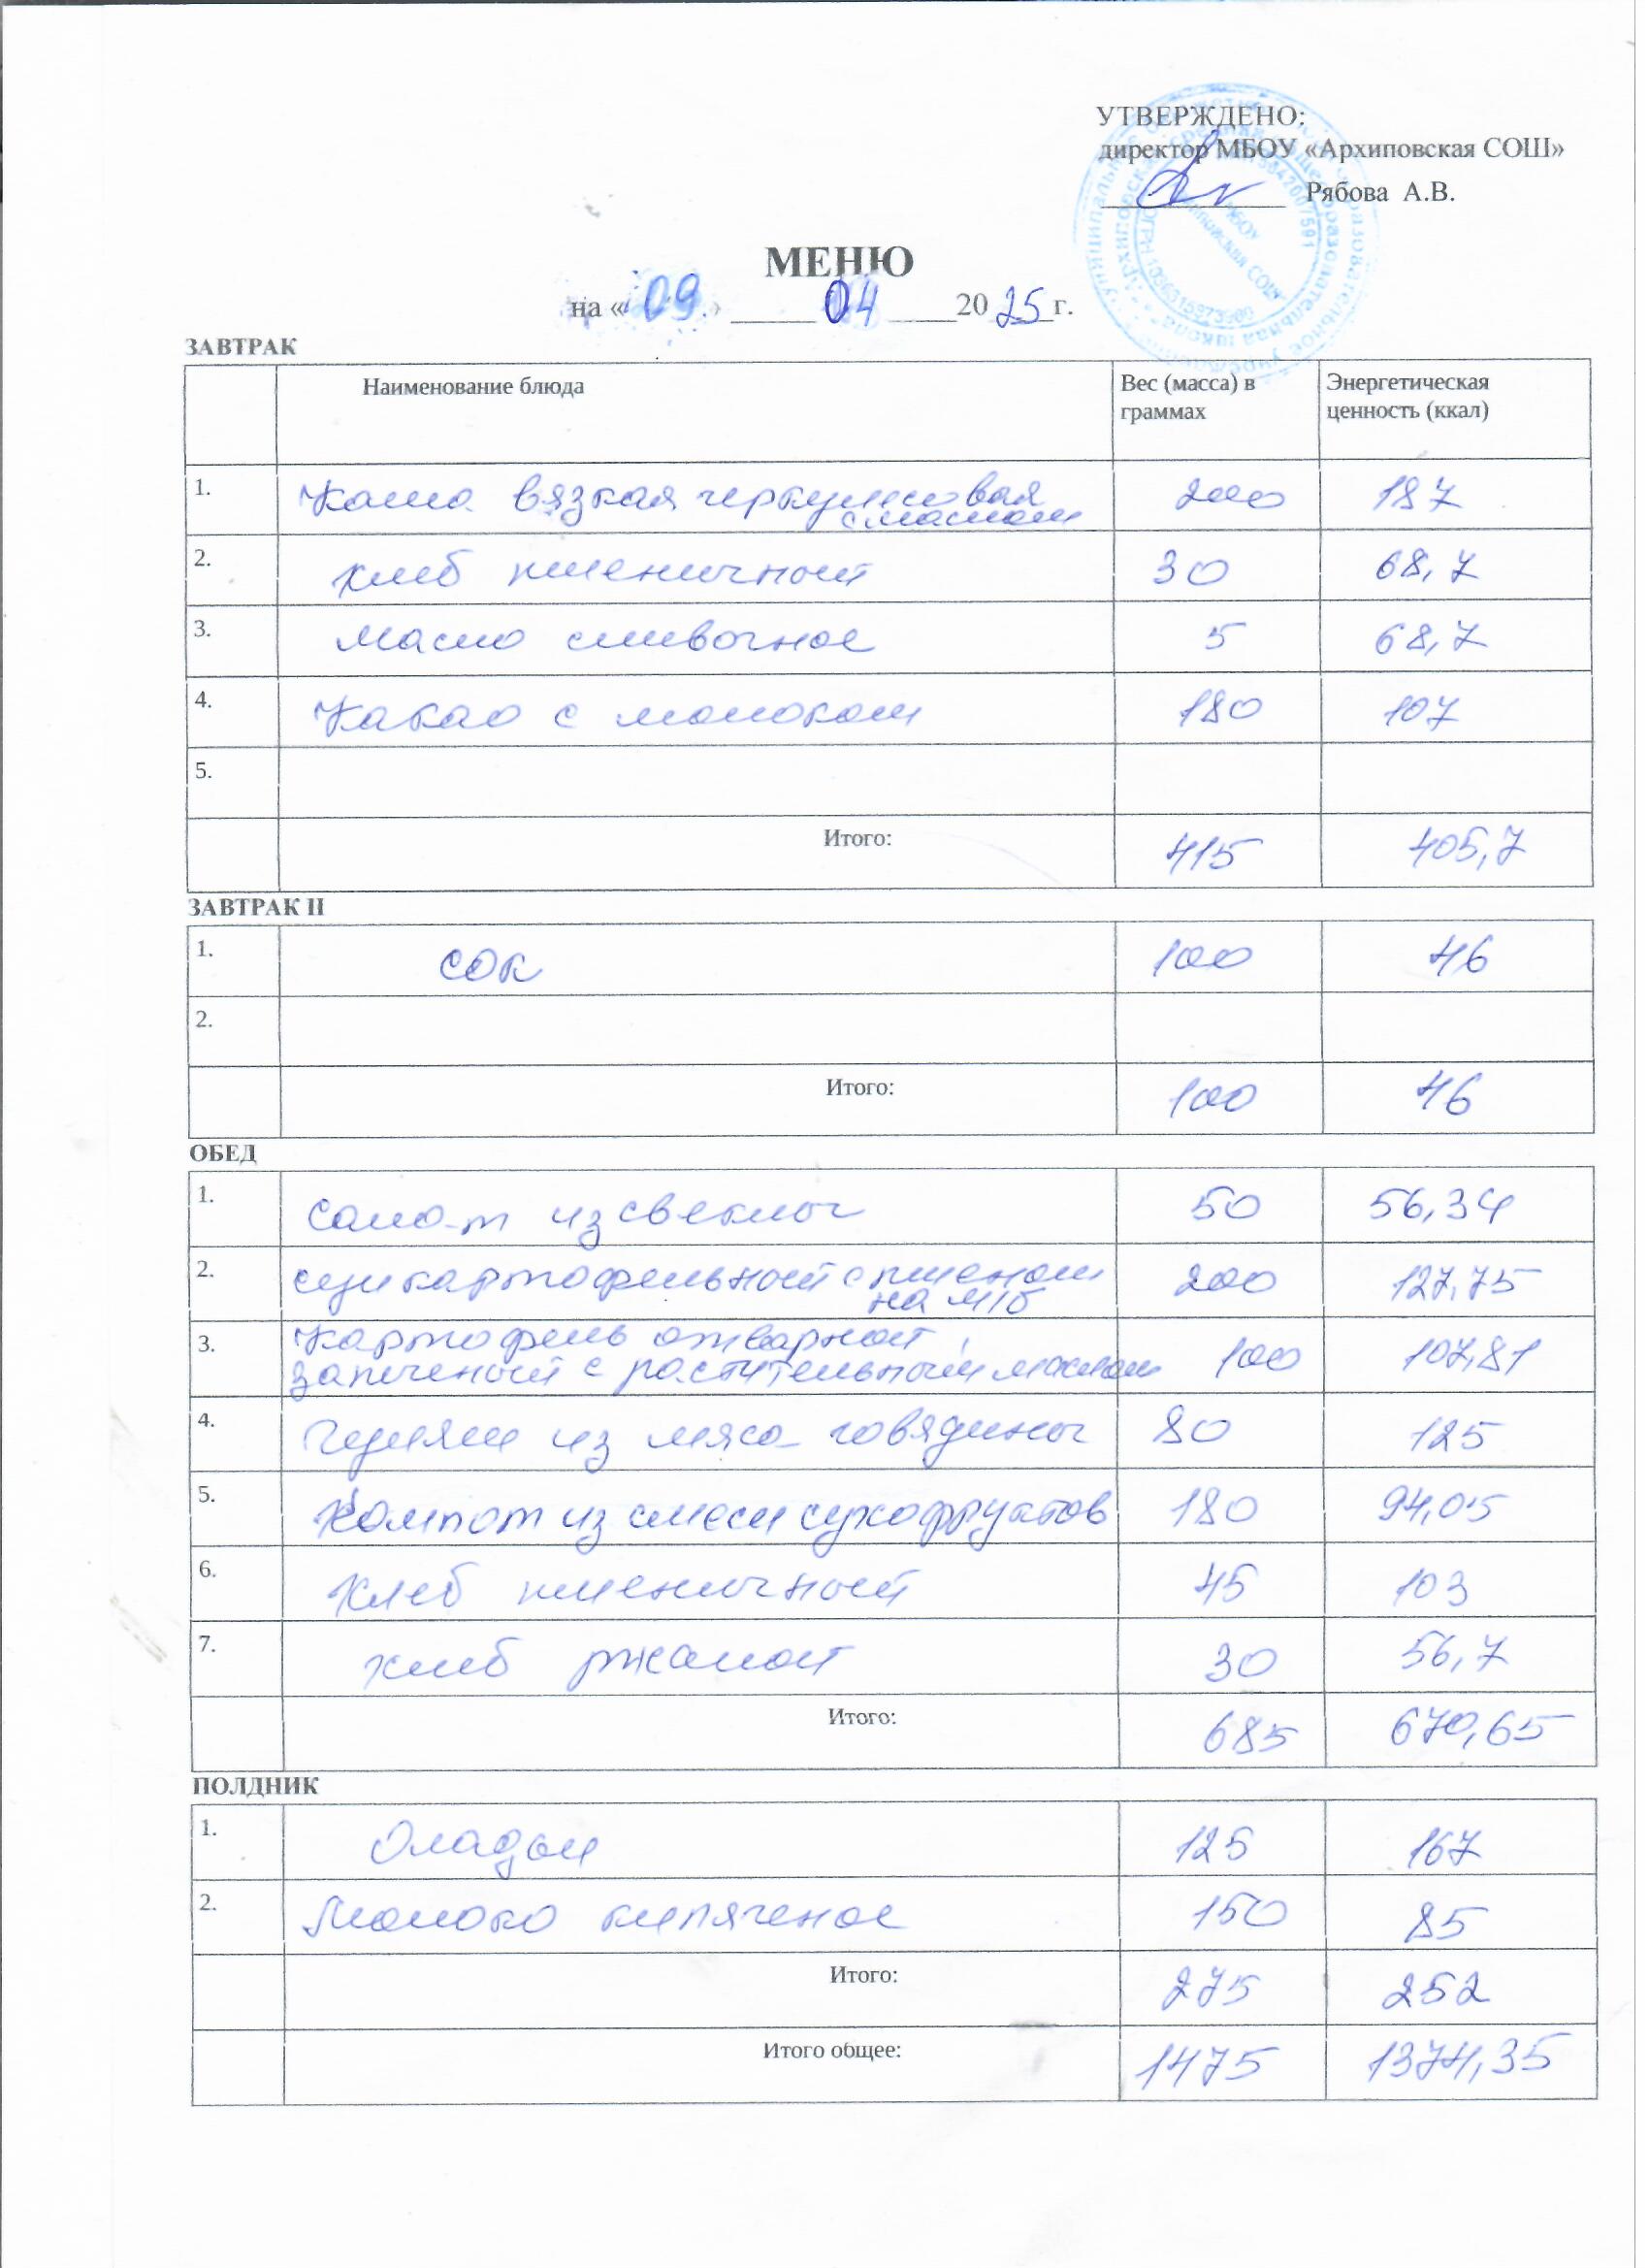 УТВЕРЖДЕНО:
директор МБОУ «Архиповская СОШ»
Рябова А.В.
МЕНЮ
на «09» 04 2025г.
ЗАВТРАК
Наименование блюда Вес (масса) в граммах Энергетическая ценность (ккал)
1. Каша вязкая геркулесовая с маслом 200 187
2. хлеб пшеничный 30 68,7
3. масло сливочное 5 68,7
4. Какао с молоком 180 107
5.
Итого: 415 405,7
ЗАВТРАК II
1. сок 100 46
2.
Итого: 100 46
ОБЕД
1. салат из свеклы 50 56,34
2. суп картофельный с пшеном на м/б 200 127,75
3. Картофель отварной, запеченый с растительным маслом 100 107,81
4. Гуляш из мяса говядины 80 125
5. Компот из смеси сухофруктов 180 94,05
6. Хлеб пшеничный 45 103
7. хлеб ржаной 30 56,7
Итого: 685 670,65
ПОЛДНИК
1. Оладьи 125 167
2. Молоко кипяченое 150 85
Итого: 275 252
Итого общее: 1475 1374,35